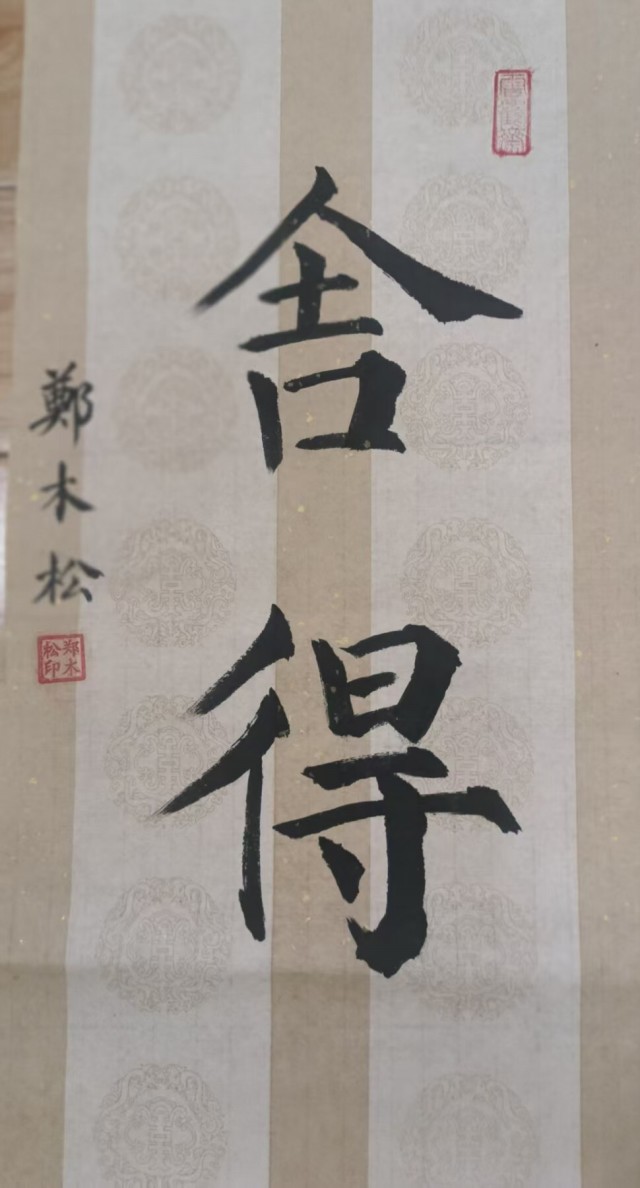 舍得
鄭木松
郑木松印